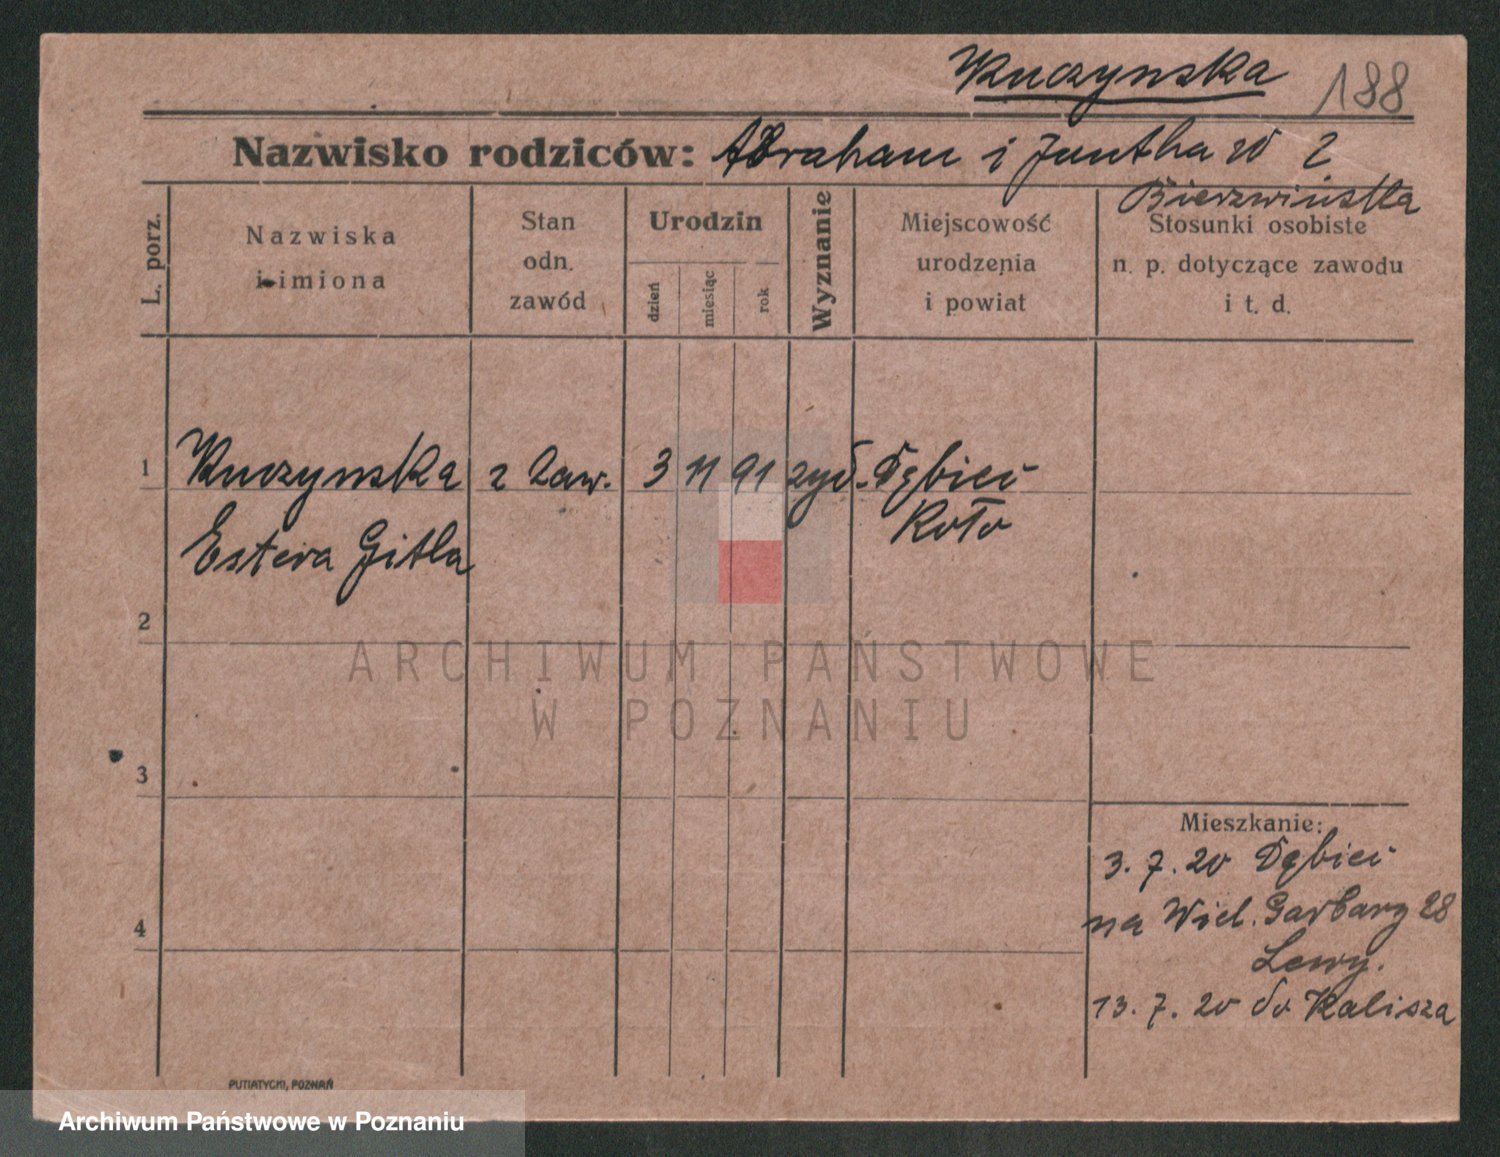 Kuczynska 188
Nazwisko rodziców: Abraham i Jentha w 2
Bierzwińska
L. porz.
Nazwiska
i imiona
Stan
odn.
zawód
Urodzin
dzień
miesiąc
rok
Wyznanie
Miejscowość
urodzenia
i powiat
Stosunki osobiste
n. p. dotyczące zawodu
i t. d.
1 Kuczynska zaw. 3 11 91 żyd. Dębieć
Estera Gitla Koło
2
ARCHIWUM PAŃSTWOWE
W POZNANIU
3
Mieszkanie:
3.7.20 Dębieć
4
na Wiel. Garbary 28
Lewy.
13.7.20 do Kalisza
PUTIATYCKI, POZNAŃ
Archiwum Państwowe w Poznaniu